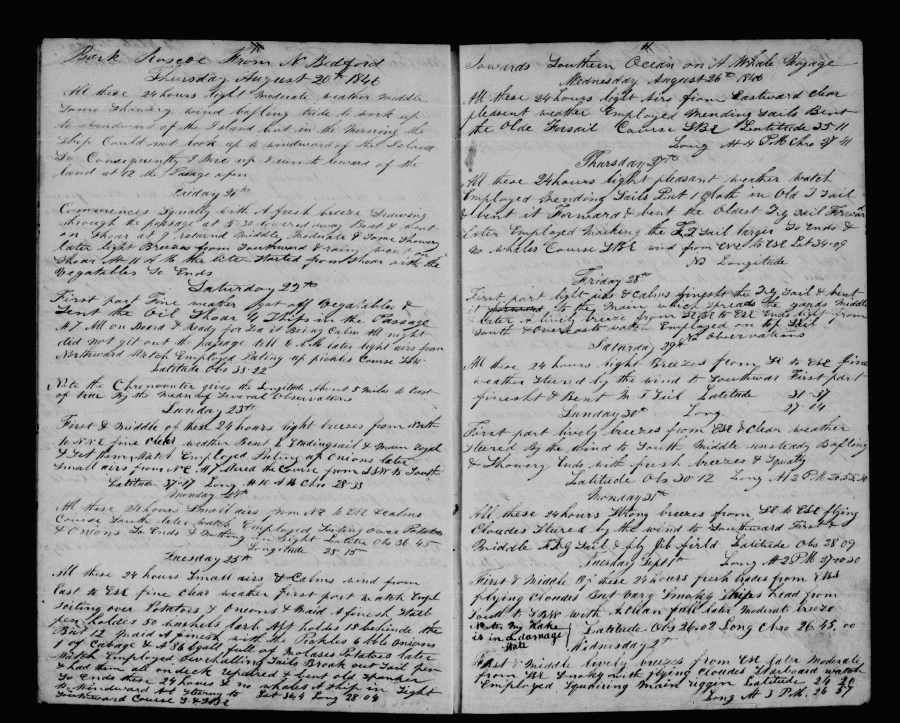 Bark Roscoe From N Bedford
Thursday August 20th 1846
All these 24 hours light moderate weather middle
some showery wind bafling tride to work up
to windward of the Island but in the morning the
ship Could not look up to windward of the Island
So Consequently I Bore up & run to leward of the
land at 12 the Passage open
Friday 21th
Commences Squally with A fresh breeze Drawing
through the passage at 3-30 lowered away Boat & went
on Shoar at 7 returned Middle Moderate & Some Showery
later light Breezes from Southward & rainy went on
Shoar At 11 A M the later Started from Shoar with the
Vegatables So Ends
Saturday 22th
First part Fine weather got off Vegatables &
Sent the Oil Shoar in the Passage
At 7 All on Board & Ready for Sea it Being Calm All night
did not git out the passage till 6 A M later light airs from
Northward Watch Employed Puting up pickles Course SSW
Latitude Obs 38-22
Note the Chronometer gives the Longitude About 5 Miles to East
of true By the Mean of Several Observations
Sunday 23th
First & Middle of these 24 hours light breezes from North
to N N E fine Clear weather Bent Studingsail & Main
& Set them Watch Employed Puting up Onions later
Small airs from N E At 7 Altered the Course from SSW to South
Latitude 37-17 Long At 10 A M Chro 28-33
Monday 24th
All these 24 hours Small airs from NE to ESE & calms
Course South later watch Employed Sorting over Potatoes
& Onions So Ends & Nothing in Sight Latitu Obs 36 45
Longitude 28-15
Tuesday 25th
All these 24 hours Small airs & Calms wind from
East to ESE fine Clear weather First part watch Empl
Sorting over Potatoes & Onions & Maid A finesh
pen holdes 50 bushels Aft holdes 15 behinde the
But 12 Maid A finesh with the Pickles 6 Bbls Onions
1 of Cabage & A 56 full of Molases Potatoes later
Watch Employed Overhalling Sails Break out Sail pen
& had them on deck repaired & bent old Spanker
So Ends these 24 hours & no whales or Ship in Sight
to Windward Latt 36 4 Long 28-04
Southward Course S & SBE
Towards Southern Ocean on A Whale Voyage
Wednesday August 26th 1846
All these 24 hours light Airs from Eastward Clear
pleasent weather Employed Mending Sails Bent
the Olde Forsail Course SBE Latitude 35 11
Long At 4 PM Chro 27 41
Thursday 27th
All these 24 hours light pleasant weather watch
Employed Mending Sails Put 1 Cloth in Old T Sail
& bent it Forward & bent the Oldest T g Sail Forward
later Employed Making the larger So Ends &
no whales Course SBE wind from ENE to ESE Lat 34-09
No Longitude
Friday 28th
First part light airs & Calms finesht the T g Sail & bent
it to the Main which Spreads the yards Middle
later A lively breeze from SEBE to ESE Ends light from
South & Overcasts watch Employed on top Sail
No Observations
Saturday 29th
All these 24 hours light Breezes from SE to ESE fine
weather Stered by the wind to Southward First part
finesht & Bent M T Sail Latitude 31-57
Long 27-14
Sunday 30th
First part lively breezes from ESE & Clear weather
Stered By the wind to South Middle unsteady Bafling
& Showery Ends with fresh breezes & Squaly
Latitude Obs 30 12 Long At 3 P M 26-55-30
Monday 31st
All these 24 hours Strong breezes from SE to ESE flying
Cloudes Stered by the wind to Southward First &
Middle T g Sail & fly Jib firld Latitude Obs 28 09
Tuesday Sept 1st Long At 3 P M 27-00 30
First & Middle Of these 24 hours fresh trades from EBS
flying Cloudes But vary Smoky Ships head from
South to SBW with A clean full later Moderate breeze
Note My Rake
is in A damage
State
Latitude Obs 26-02 Long Chro 26.45,00
Wednesday 2d
First & Middle lively breezes from ESE later Moderate
from Smoky with flying cloudes Starboard watch
Employed Squaering Main riggin Latitude 24 20
Long At 3 P.M. 26 57